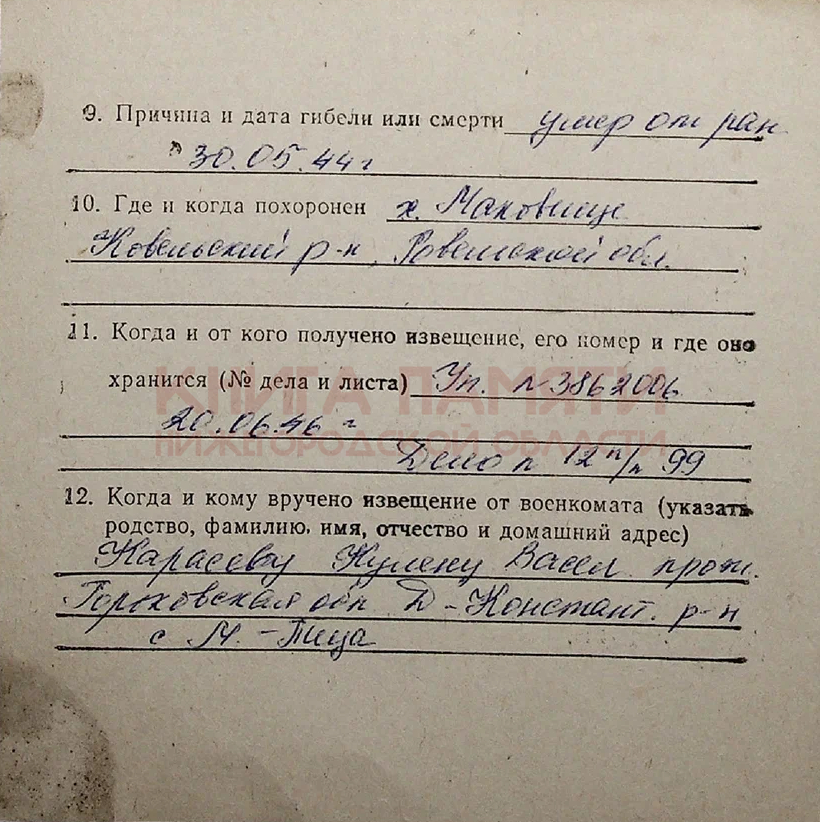 9. Причина и дата гибели или смерти умер от ран
30.05.44 г
10. Где и когда похоронен х. Маковище
Ковельский р-н, Ровенской обл.
11. Когда и от кого получено извещение, его номер и где оно
хранится (№ дела и листа) Уп. № 3862006
КНИГА ПАМЯТИ
20.06.46 г
НИЖЕГОРОДСКОЙ ОБЛАСТИ
Дело № 12 п/п 99
12. Когда и кому вручено извещение от военкомата (указать
родство, фамилию, имя, отчество и домашний адрес)
Карасеву Васил прож.
Горьковская обл Д-Констант. р-н
с М.-Пица